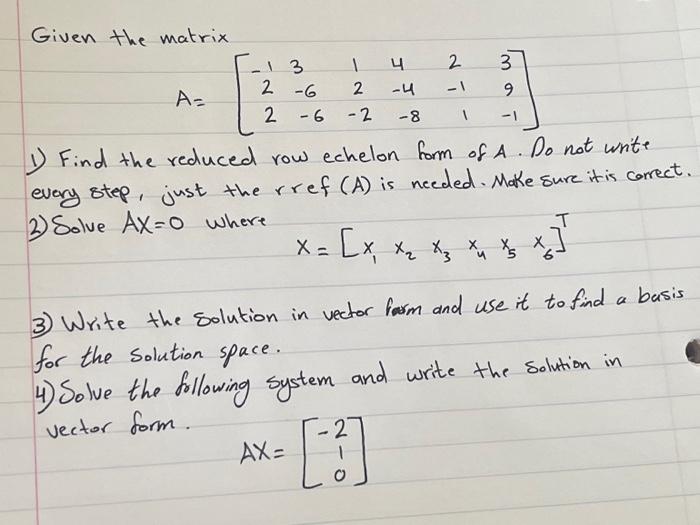 Given the matrix
A= [ -1 3 1 4 2 3
2 -6 2 -4 -1 9
2 -6 -2 -8 1 -1 ]
1) Find the reduced row echelon form of A. Do not write
every step, just the rref(A) is needed. Make sure it is correct.
2) Solve AX=0 where
X = [x₁ x₂ x₃ x₄ x₅ x₆]ᵀ
3) Write the solution in vector form and use it to find a basis
for the solution space.
4) Solve the following system and write the solution in
vector form.
AX= [ -2
1
0 ]